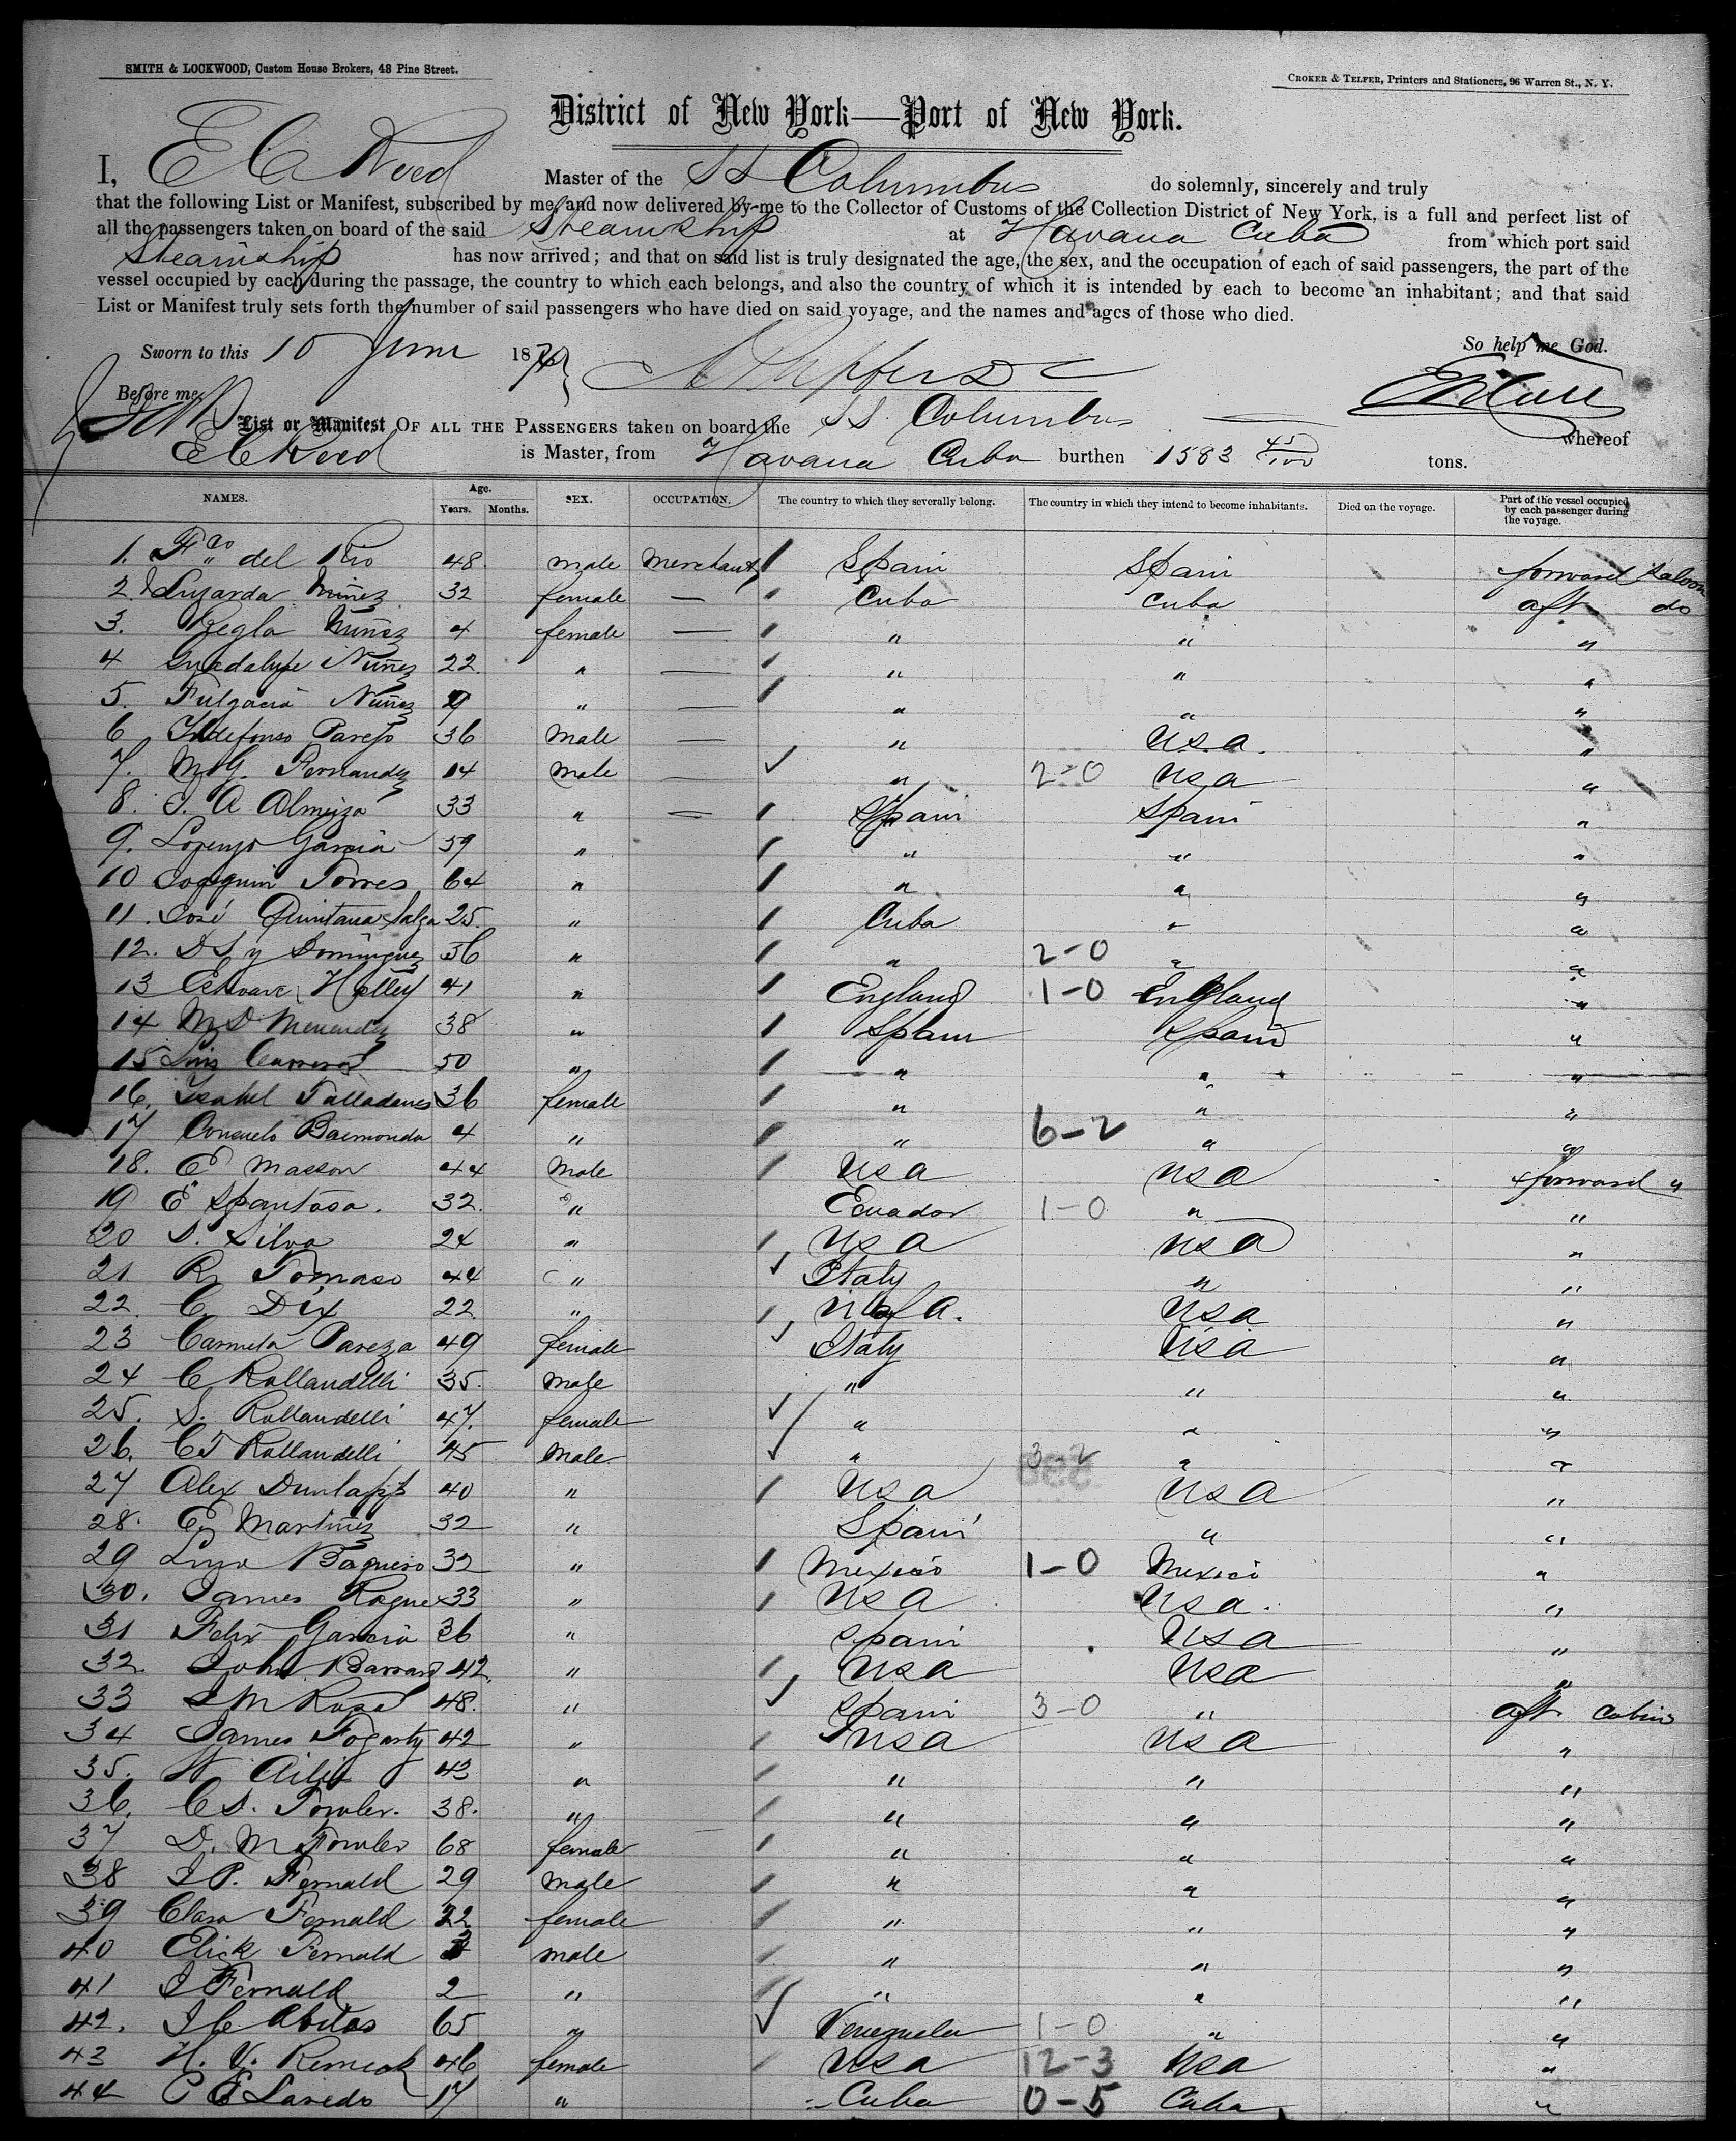 SMITH & LOCKWOOD, Custom House Brokers, 48 Pine Street.
CROKER & TELFER, Printers and Stationers, 96 Warren St., N. Y.
District of New York—Port of New York.
I, E C Reed Master of the SS Columbus do solemnly, sincerely and truly
that the following List or Manifest, subscribed by me, and now delivered by me to the Collector of Customs of the Collection District of New York, is a full and perfect list of
all the passengers taken on board of the said Steamship at Havana Cuba from which port said
Steamship has now arrived; and that on said list is truly designated the age, the sex, and the occupation of each of said passengers, the part of the
vessel occupied by each during the passage, the country to which each belongs, and also the country of which it is intended by each to become an inhabitant; and that said
List or Manifest truly sets forth the number of said passengers who have died on said voyage, and the names and ages of those who died.
Sworn to this 10 June 187 So help me God.
Before me,
List or Manifest OF ALL THE PASSENGERS taken on board the SS. Columbus whereof
E C Reed is Master, from Havana Cuba burthen 1583 45/100 tons.
NAMES. Age. Years. Months. SEX. OCCUPATION. The country to which they severally belong. The country in which they intend to become inhabitants. Died on the voyage. Part of the vessel occupied by each passenger during the voyage.
1. Fco del Rio 48 male Merchant Spain Spain forward saloon
2 Luyarda Nuñez 32 female — Cuba Cuba aft do
3. Regla Nuñez 4 female — " " "
4 Guadalupe Nuñez 22 " — " " "
5. Nuñez " — " " "
6 Ildefonso Parejo 36 Male — " USA. "
7. M G. Fernandez 14 Male — " 2-0 USA "
8. A 33 " — Spain Spain "
9. Lorenzo Garcia 59 " " " "
10 Joaquin Torres 64 " " " "
11. José Quintana 25 " Cuba " "
12. D S y Dominguez 36 " " 2-0 " "
13 Holley 41 " England 1-0 England "
14 M D Menendez 38 " Spain Spain "
15 Luis 50 " " " "
16. Isabel 36 female " " "
17 Consuelo 4 " " 6-2 " "
18. E Masson 44 Male USA USA forward "
19 E Spantoso. 32 " Ecuador 1-0 " "
20 Silva 24 " USA USA "
21. Tomaso 44 " Italy " "
22. C Dix 22 " U S A. USA "
23 Carmela Pareza 49 female Italy USA "
24 C Rollandelli 35. Male " " "
25. S. Rollandelli 47. female " " "
26. C T Rollandelli 45 Male " 3-2 " "
27 Alex Dunlapp 40 " USA USA "
28. E. Martinez 32 " Spain " "
29 Baquero 32 " Mexico 1-0 Mexico "
30. James 33 " USA USA. "
31 Felix Garcia 36 " Spain USA "
32. John 42. " USA USA "
33 M 48. " Spain 3-0 " aft cabin
34 James Fogarty 42 " USA USA "
35. 43 " " " "
36. C S. Fowler. 38. " " " "
37 D. M Fowler 68 female " " "
38 P. Fernald 29 male " " "
39 Clara Fernald 22 female " " "
40 Elick Fernald male " " "
41 Fernald 2 " " " "
42. 65 " Venezuela 1-0 " "
43 H. V. 46 female USA 12-3 USA "
44 Laredo 17 " Cuba 0-5 Cuba "